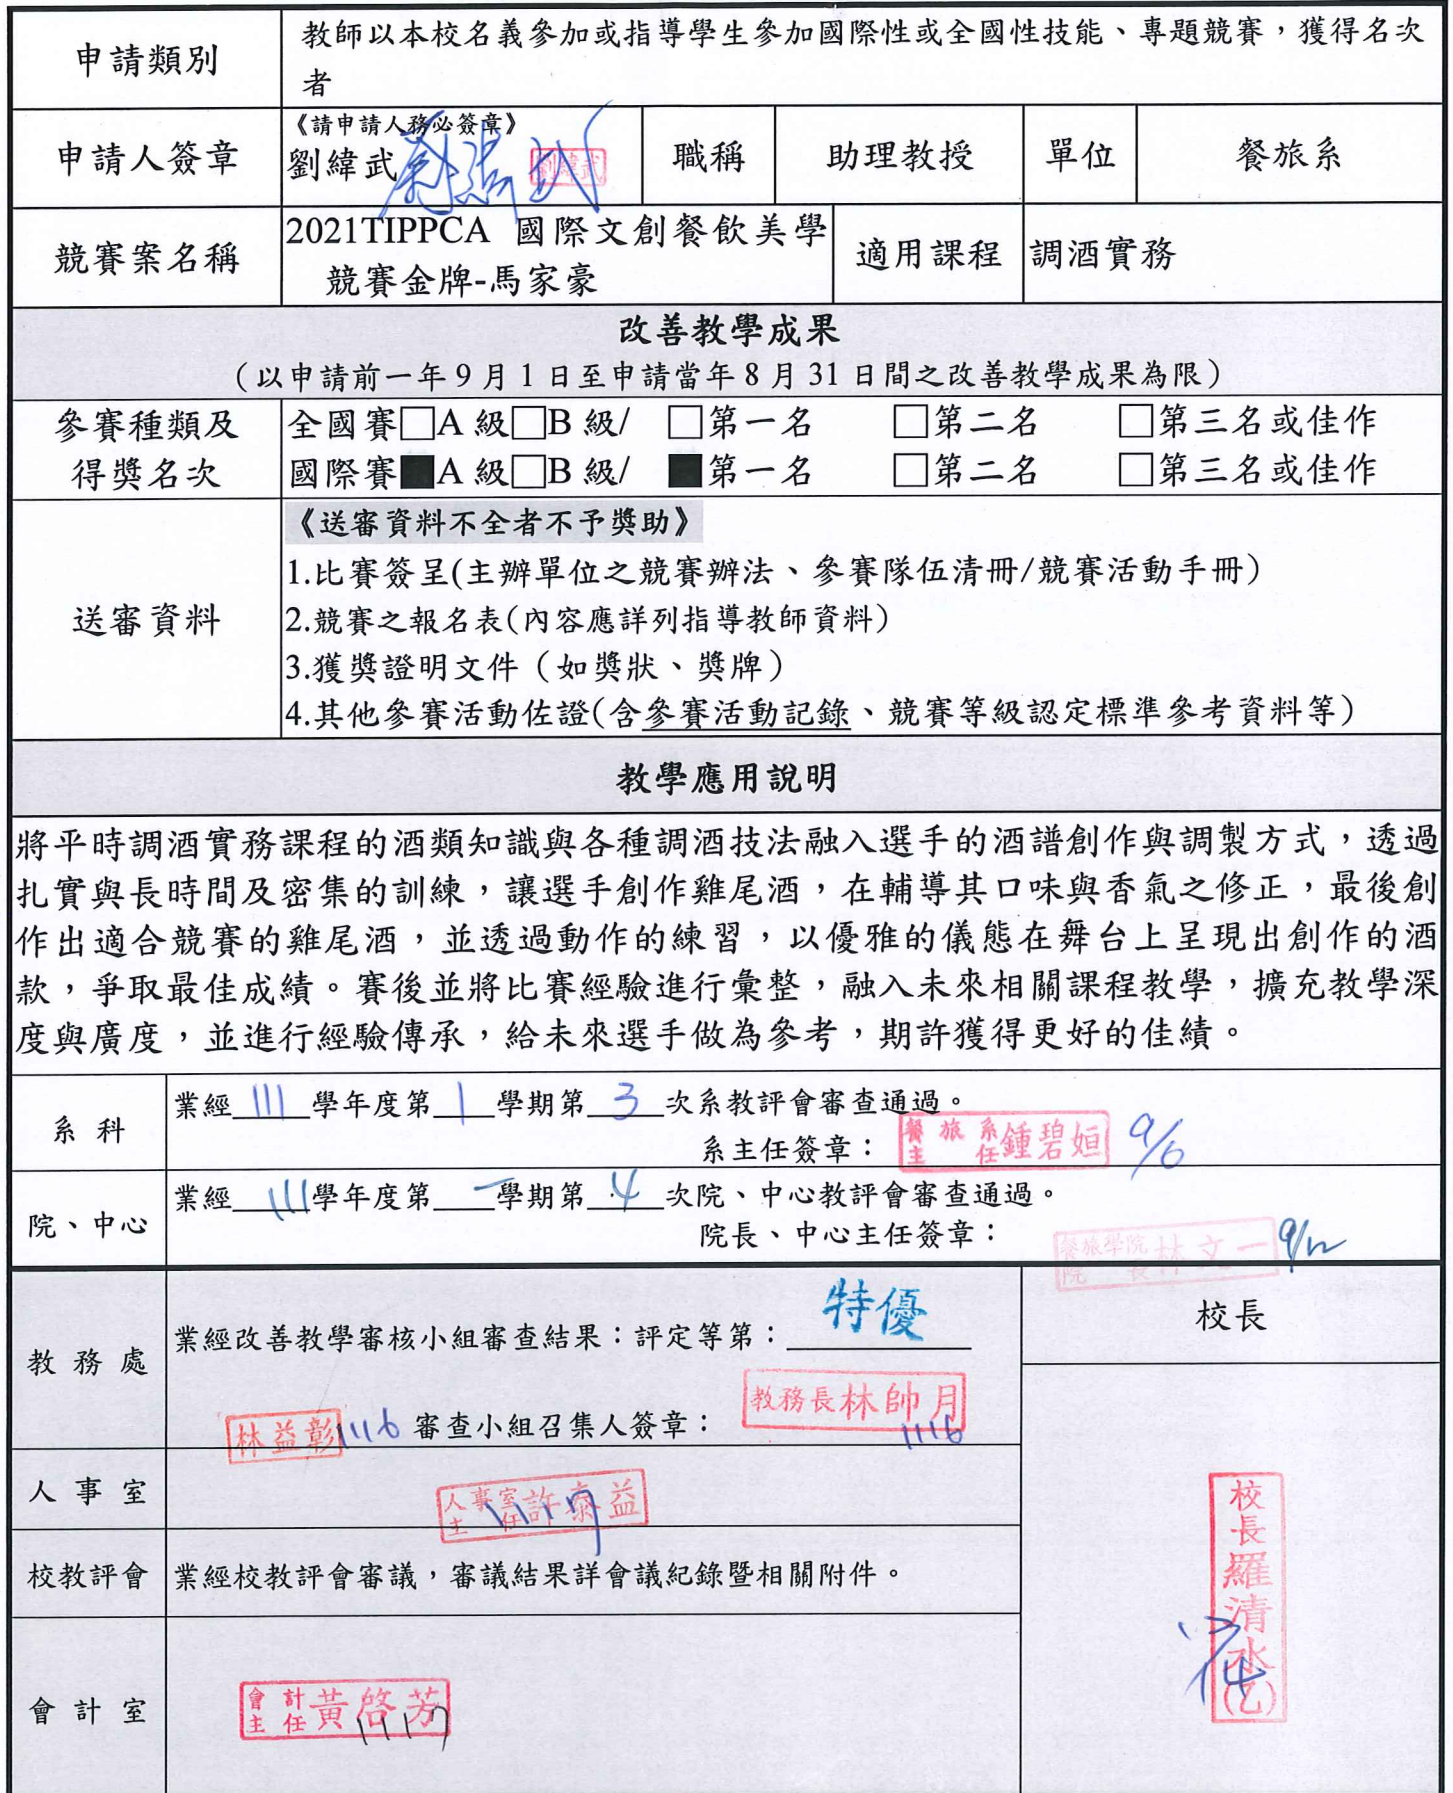 申請類別
教師以本校名義參加或指導學生參加國際性或全國性技能、專題競賽，獲得名次
者
申請人簽章
《請申請人務必簽章》
劉緯武 劉緯武 劉緯武
職稱
助理教授
單位
餐旅系
競賽案名稱
2021TIPPCA 國際文創餐飲美學
競賽金牌-馬家豪
適用課程
調酒實務
改善教學成果
（以申請前一年9月1日至申請當年8月31日間之改善教學成果為限）
參賽種類及
得獎名次
全國賽□A 級□B 級/ □第一名 □第二名 □第三名或佳作
國際賽■A 級□B 級/ ■第一名 □第二名 □第三名或佳作
送審資料
《送審資料不全者不予獎助》
1.比賽簽呈(主辦單位之競賽辦法、參賽隊伍清冊/競賽活動手冊)
2.競賽之報名表(內容應詳列指導教師資料)
3.獲獎證明文件（如獎狀、獎牌）
4.其他參賽活動佐證(含參賽活動記錄、競賽等級認定標準參考資料等)
教學應用說明
將平時調酒實務課程的酒類知識與各種調酒技法融入選手的酒譜創作與調製方式，透過
扎實與長時間及密集的訓練，讓選手創作雞尾酒，在輔導其口味與香氣之修正，最後創
作出適合競賽的雞尾酒，並透過動作的練習，以優雅的儀態在舞台上呈現出創作的酒
款，爭取最佳成績。賽後並將比賽經驗進行彙整，融入未來相關課程教學，擴充教學深
度與廣度，並進行經驗傳承，給未來選手做為參考，期許獲得更好的佳績。
系科
業經 111 學年度第 1 學期第 3 次系教評會審查通過。
系主任簽章： 餐旅系主任鍾碧姮 9/6
院、中心
業經 111 學年度第 一 學期第 4 次院、中心教評會審查通過。
院長、中心主任簽章： 餐旅學院院長林文一 9/12
教務處
業經改善教學審核小組審查結果：評定等第： 特優
林益彰 1116 審查小組召集人簽章： 教務長林帥月 1116
校長
人事室
人事室主任許泰益 1117
校教評會
業經校教評會審議，審議結果詳會議紀錄暨相關附件。
會計室
會計主任黃啓芳 1117
校長羅清水(乙)